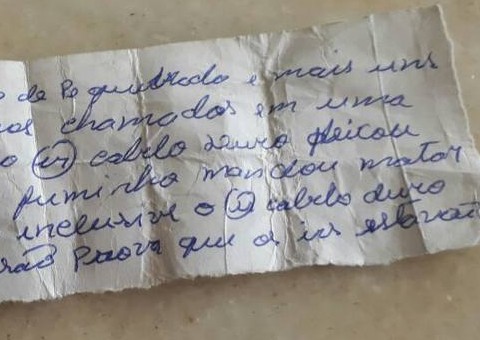 de Pe quebrado e mais uns
chamados em uma
o (ir) cabelo duro ficou
fuminho mandou matar
inclusive o (ir) cabelo duro
prova que os irs estavam